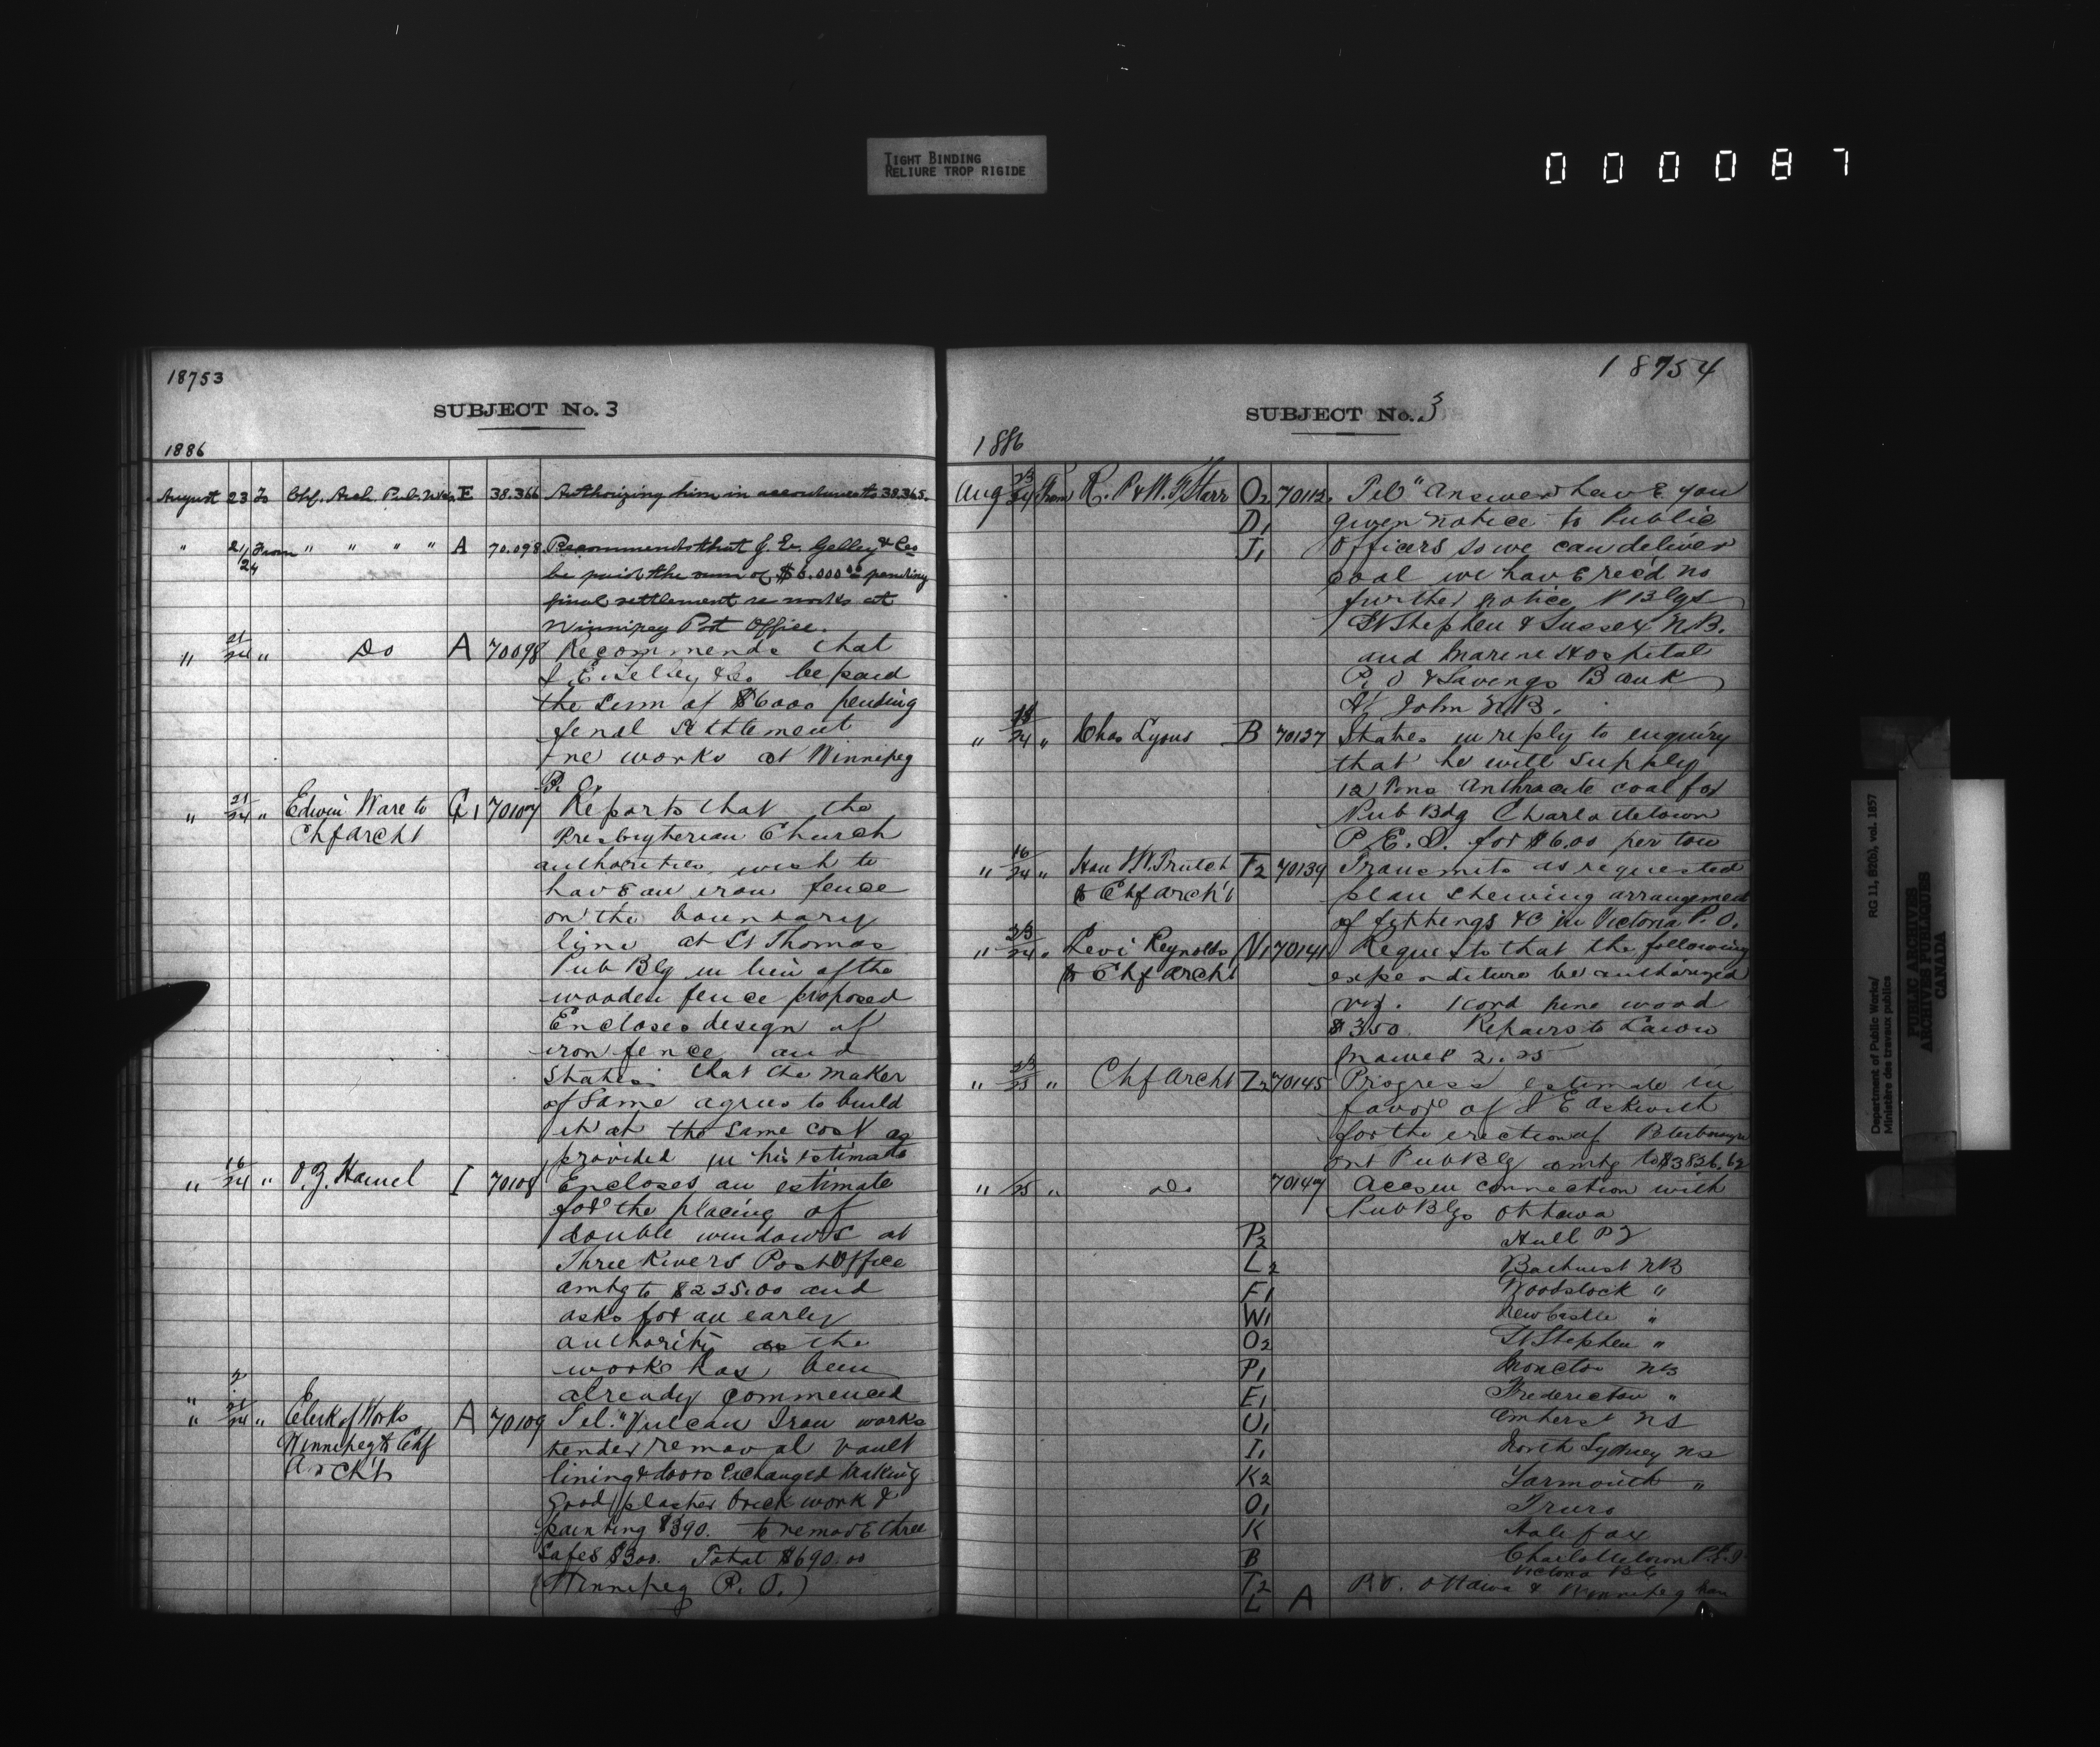 TIGHT BINDING
RELIURE TROP RIGIDE
000087
18753
SUBJECT No. 3
1886
August 23 To Chf. Arch. Pub. Wks E 38.366 Authorizing him in accordance to 38.365.
" 21/24 From " " " " A 70.098 Recommends that J. E. Gelley & Co
be paid the sum of $6.000 00 pending
final settlement re works at
Winnipeg Post Office.
" 21/24 " Do A 70098 Recommends that
J. E. Gelley & Co be paid
the sum of $6000 pending
final settlement
re works at Winnipeg
P. O.
" 21/24 " Edwin Ware to G1 70107 Reports that the
Chf Archt Presbyterian Church
authorities wish to
have an iron fence
on the boundary
line at St Thomas
Pub Blg in lieu of the
wooden fence proposed
Encloses design of
iron fence and
States that the maker
of same agrees to build
it at the same cost as
provided in his estimate
" 16/24 " O. Z. Hamel I 70108 Encloses an estimate
for the placing of
double windows at
Three Rivers Post Office
amtg to $225.00 and
asks for an early
authority as the
works has been
already commenced
" 21/24 " Clerk of Works A 70109 Tel. "Vulcan Iron works
Winnipeg to Chf tender removal vault
Archt lining & doors exchanged making
good plaster brick work &
painting $390. to remove three
Safes $300. Total $690.00
(Winnipeg P. O.)
18754
SUBJECT No. 3
1886
Aug 23/24 From R. P & W. F Starr O2 70112. Tel "Answer have you
D1 given notice to Public
J1 Officers so we can deliver
coal we have rec'd no
further notice P Blgs
St Stephen & Sussex N.B.
and Marine Hospital
P. O & Savings Bank
St John N.B.
" 18/24 " Chas Lyons B 70137 States in reply to enquiry
that he will supply
12 Tons Anthracite coal for
Pub Bdg Charlottetown
P. E. I. for $6.00 per ton
" 16/24 " Hon J W. Trutch T2 70139 Transmits as requested
to Chf Archt plan shewing arrangement
of fittings &c in Victoria P. O.
" 23/24 " Levi Reynolds N1 70141 Requests that the following
to Chf Archt expenditure be authorized
viz. 1 Cord pine wood
$3.50 Repairs to Lawn
Mower 2.25
" 23/25 " Chf Archt Z2 70145 Progress estimate in
favor of J E Askwith
for the erection of Peterborough
Ont Pub Blg amtg to $3826.62
" /25 " Do 70147 Accs in connection with
Pub Blgs Ottawa
P2 Hull P Q
L2 Bathurst NB
F1 Woodstock "
W1 New Castle "
O2 St Stephen "
P1 Moncton NB
E1 Fredericton "
U1 Amherst NS
I1 North Sydney NS
K2 Yarmouth "
O1 Truro
K Halifax
B Charlottetown P.E.I
T2 Victoria B.C
L A P.O. Ottawa & Winnipeg Man
Department of Public Works/
Ministère des travaux publics
RG 11, B2(b), vol. 1857
PUBLIC ARCHIVES
ARCHIVES PUBLIQUES
CANADA